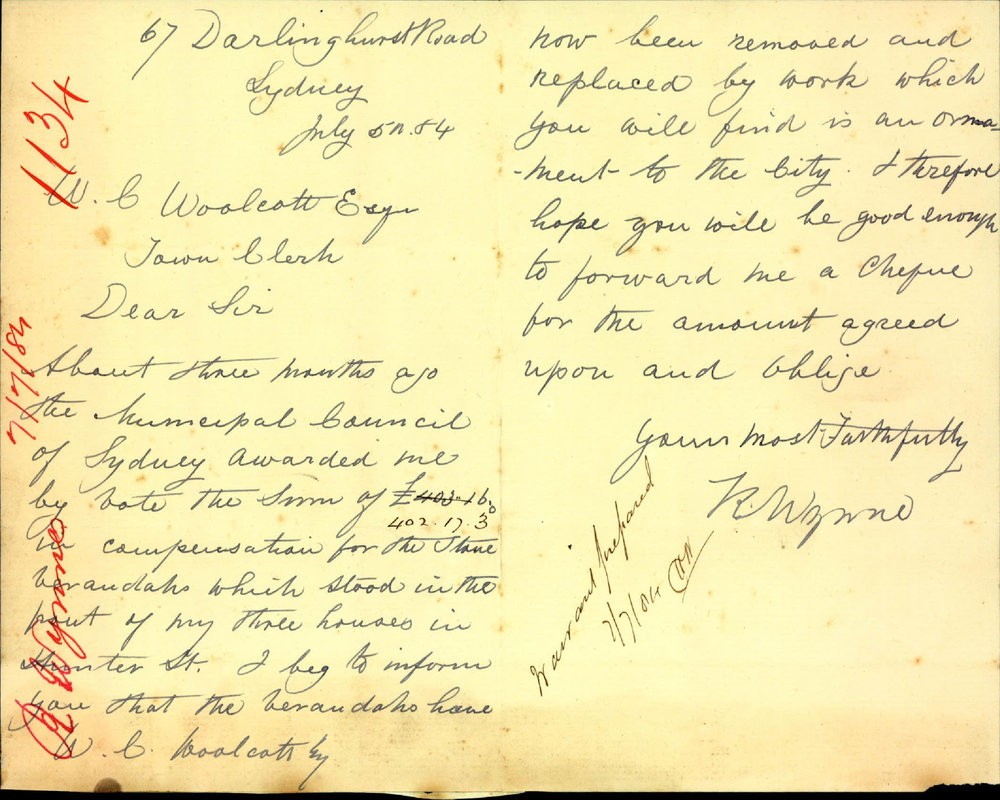 67 Darlinghurst Road
Sydney
July 5th. 84
W. C Woolcott Esqr
Town Clerk
Dear Sir
About three months ago
the Municipal Council
of Sydney awarded me
by vote the Sum of £403.16.0
402.17.3
in compensation for the Stone
verandahs which stood in the
front of my three houses in
Hunter St. I beg to inform
you that the verandahs have
W. C. Woolcott Esq
now been removed and
replaced by work which
you will find is an orna-
-ment to the City. I therefore
hope you will be good enough
to forward me a Cheque
for the amount agreed
upon and oblige
Yours most Faithfully
R. Wynne
Warrant prepared
7/7/84
1134
7/7/84
R Wynne